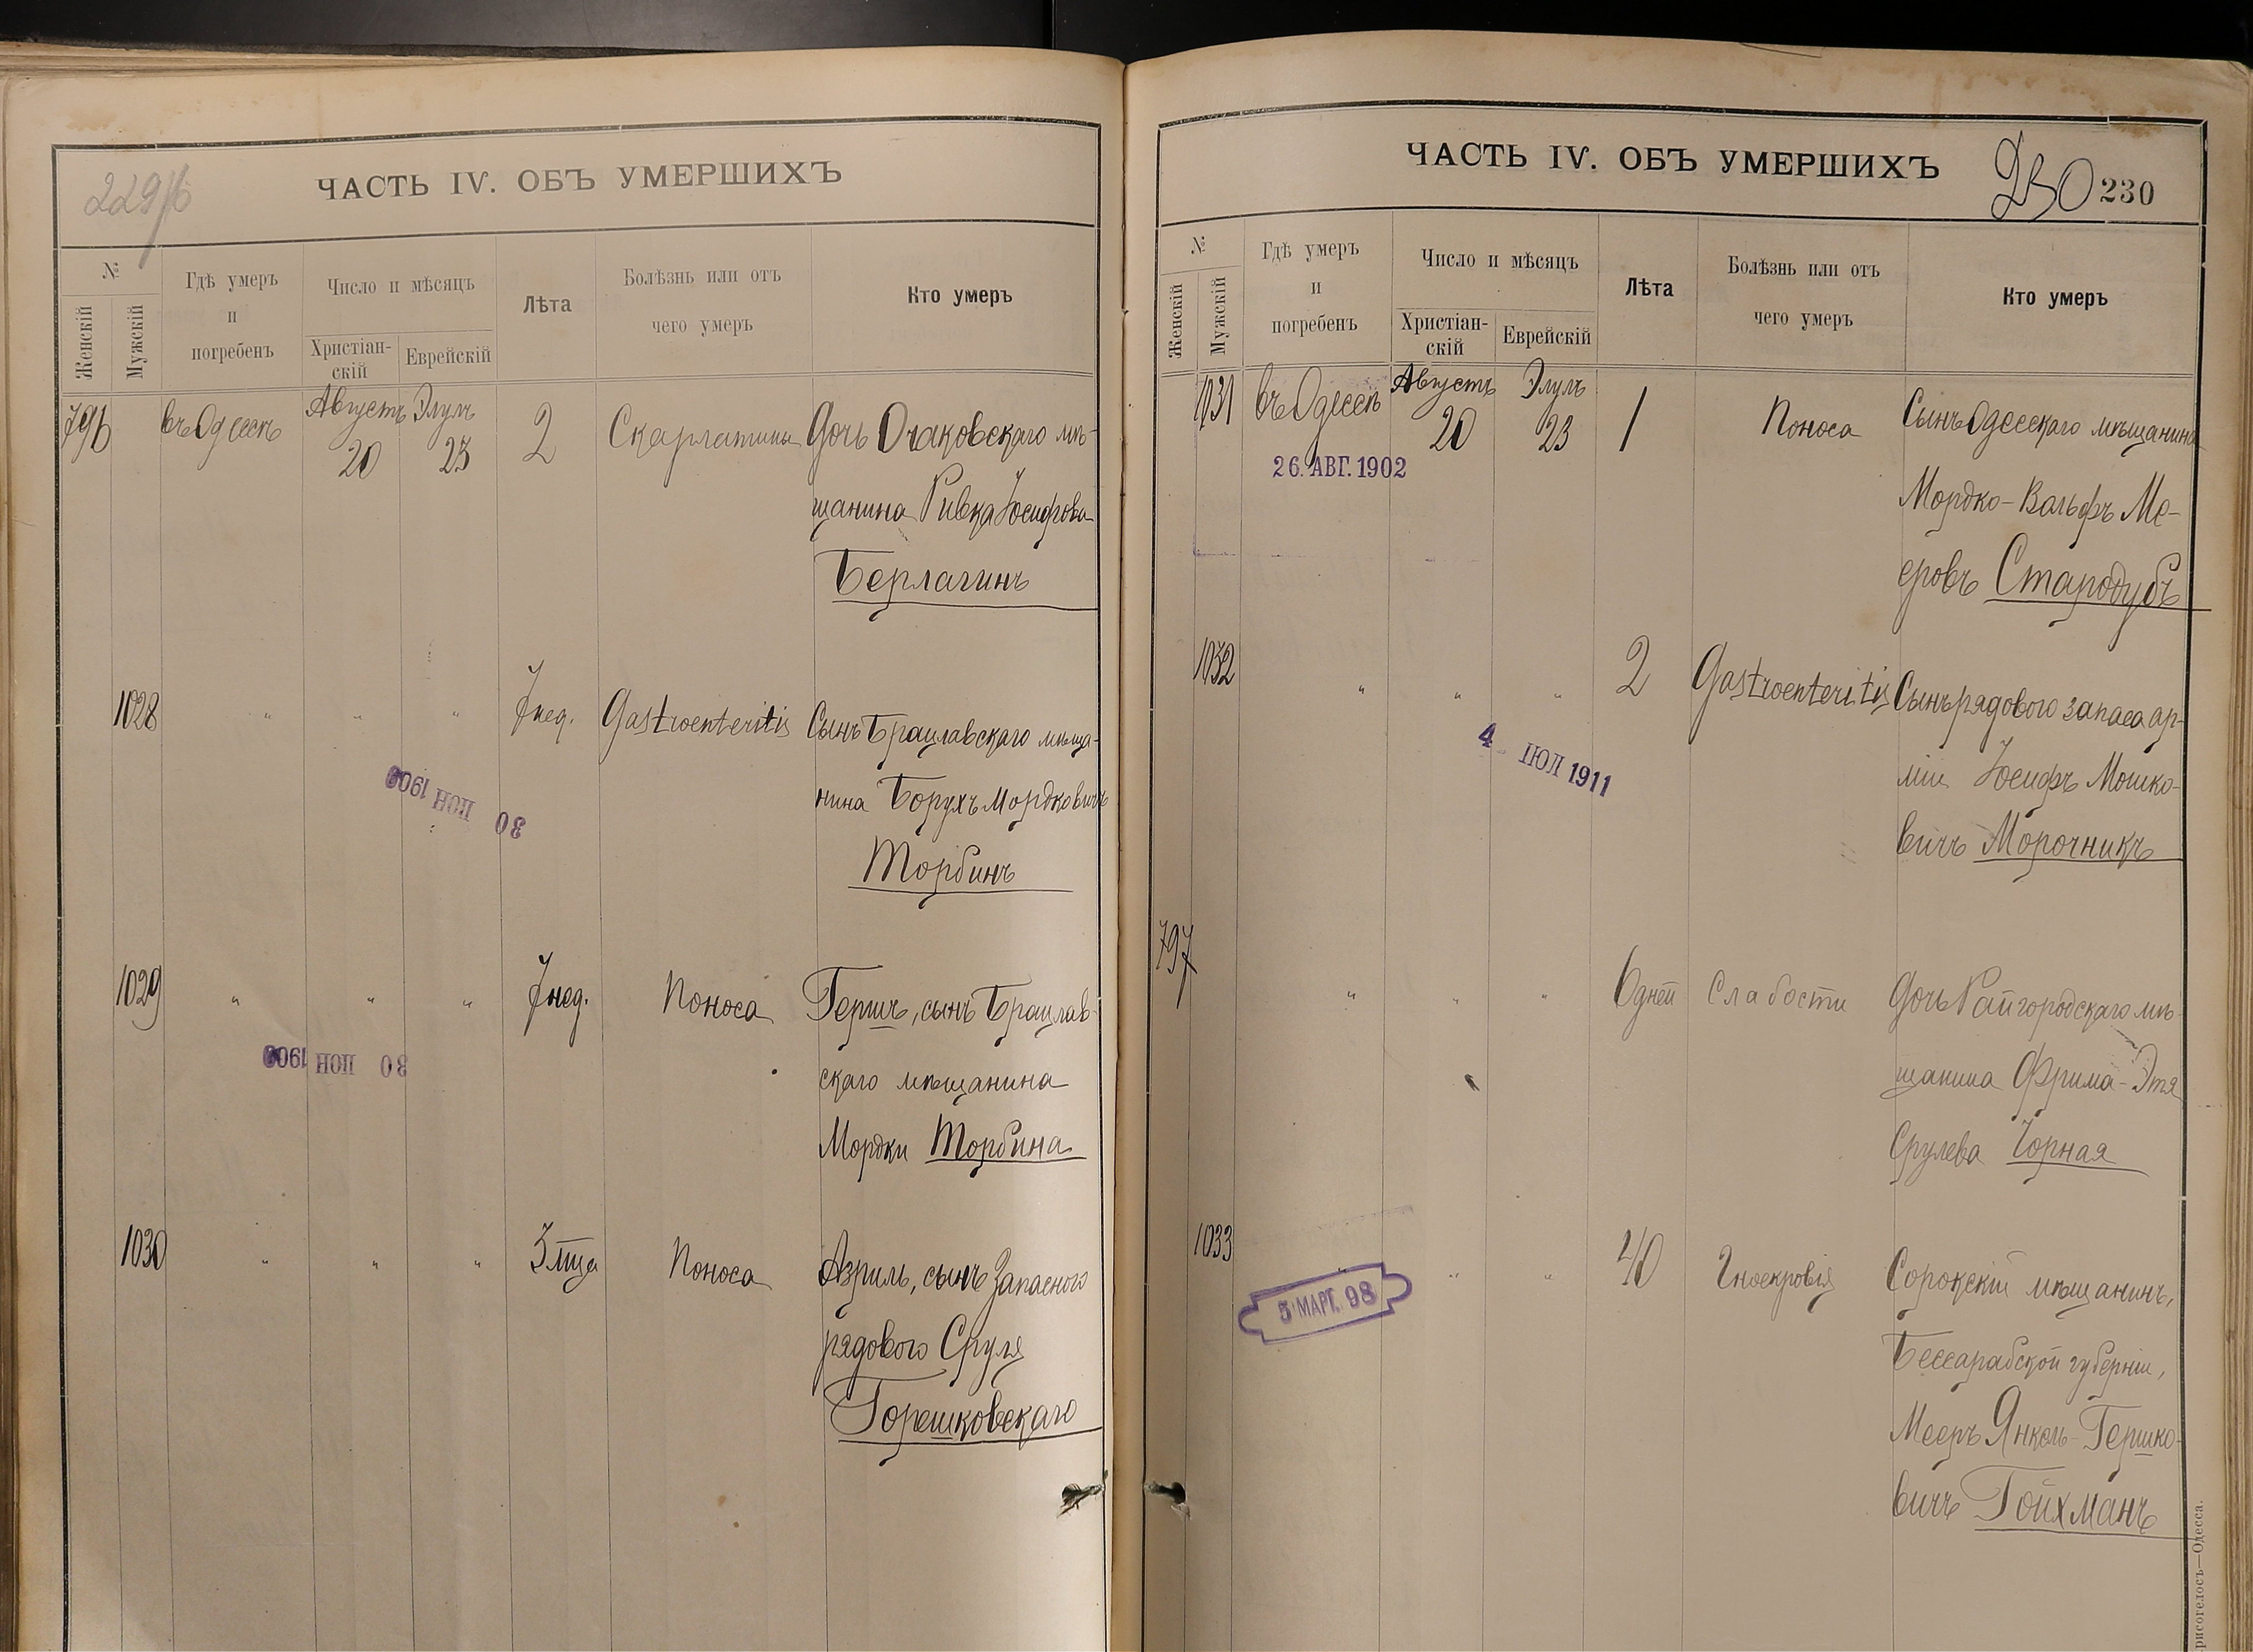 229/б
ЧАСТЬ IV. ОБЪ УМЕРШИХЪ
№
Женскій
Мужскій
Гдѣ умеръ
и
погребенъ
Число и мѣсяцъ
Христіан-
скій
Еврейскій
Лѣта
Болѣзнь или отъ
чего умеръ
Кто умеръ
796 въ Одессѣ Августъ Элулъ
20 23 2 Скарлатины Дочь Очаковскаго мѣ-
щанина Ривка Іосифова
Берлагинъ
1028 " " " 7 нед. Gastroenteritis Сынъ Брацлавскаго мѣща-
нина Борухъ Мордковичъ
Торбинъ
30 ІЮН 1909
1029 " " " 7 нед. Поноса Гершъ, сынъ Брацлав-
скаго мѣщанина
Мордки Торбина
30 ІЮН 1909
1030 " " " 3 мца Поноса Азриль, сынъ Запасного
рядового Сруля
Горешковскаго
ЧАСТЬ IV. ОБЪ УМЕРШИХЪ
230 230
№
Женскій
Мужскій
Гдѣ умеръ
и
погребенъ
Число и мѣсяцъ
Христіан-
скій
Еврейскій
Лѣта
Болѣзнь или отъ
чего умеръ
Кто умеръ
1031 въ Одессѣ Августъ Элулъ
20 23 1 Поноса Сынъ Одесскаго мѣщанина
26. АВГ. 1902
Мордко-Вольфъ Ме-
еровъ Стародубъ
1032 " " " 2 Gastroenteritis Сынъ рядового запаса ар-
міи Іосифъ Мошко-
вичъ Морочникъ
4 ІЮЛ 1911
797 " " " 6 дней Слабости Дочь Райгородскаго мѣ-
щанина Фрима-Этя
Срулева Чорная
1033 " " " 40 Гноекровія Сорокскій мѣщанинъ,
5 МАРТ. 98
Бессарабской губерніи,
Мееръ Янкель-Гершко-
вичъ Гойхманъ